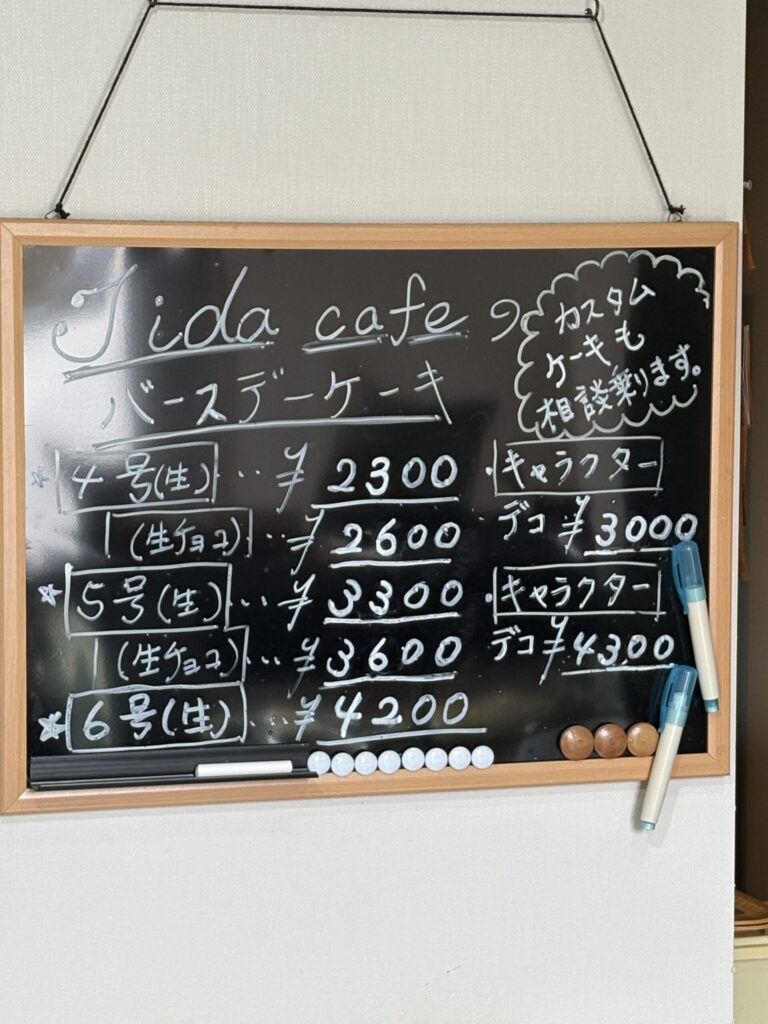 Tida cafe の
バースデーケーキ
カスタム
ケーキも
相談乗ります。
4号(生)…¥2300
(生チョコ)…¥2600
5号(生)…¥3300
(生チョコ)…¥3600
6号(生)…¥4200
・キャラクター
デコ ¥3000
・キャラクター
デコ ¥4300